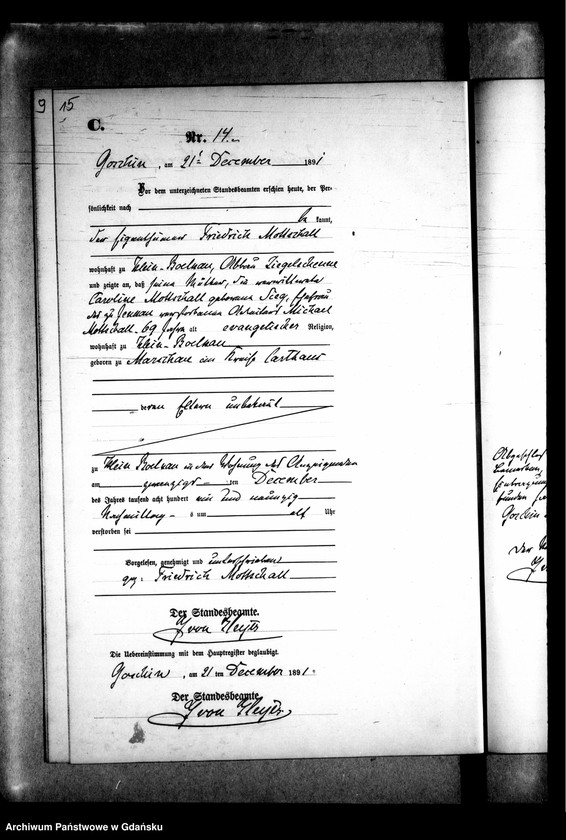 9
15
C.
Nr. 14.
Goschin, am 21ten December 1891
Vor dem unterzeichneten Standesbeamten erschien heute, der Per-
sönlichkeit nach
be kannt,
der Eigenthümer Friedrich Mottschall
wohnhaft zu Klein-Boelkau, Abbau Ziegelscheune
und zeigte an, daß seine Mutter, die verwittwete
Caroline Mottschall geborene Sieg, Ehefrau
des zu Jenkau verstorbenen Michael
Mottschall 69 Jahre alt evangelischer Religion,
wohnhaft zu Klein-Boelkau
geboren zu Marschau im Kreise Carthaus
deren Eltern unbekannt
zu Klein Boelkau in der Wohnung des Anzeigenden
am zwanzigsten December
des Jahres tausend acht hundert ein und neunzig
Nachmittags um elf Uhr
verstorben sei
Vorgelesen, genehmigt und unterschrieben
gez: Friedrich Mottschall
Der Standesbeamte.
von Heyer
Die Uebereinstimmung mit dem Hauptregister beglaubigt.
Goschin, am 21 ten December 1891.
Der Standesbeamte.
von Heyer
Der
Archiwum Państwowe w Gdańsku